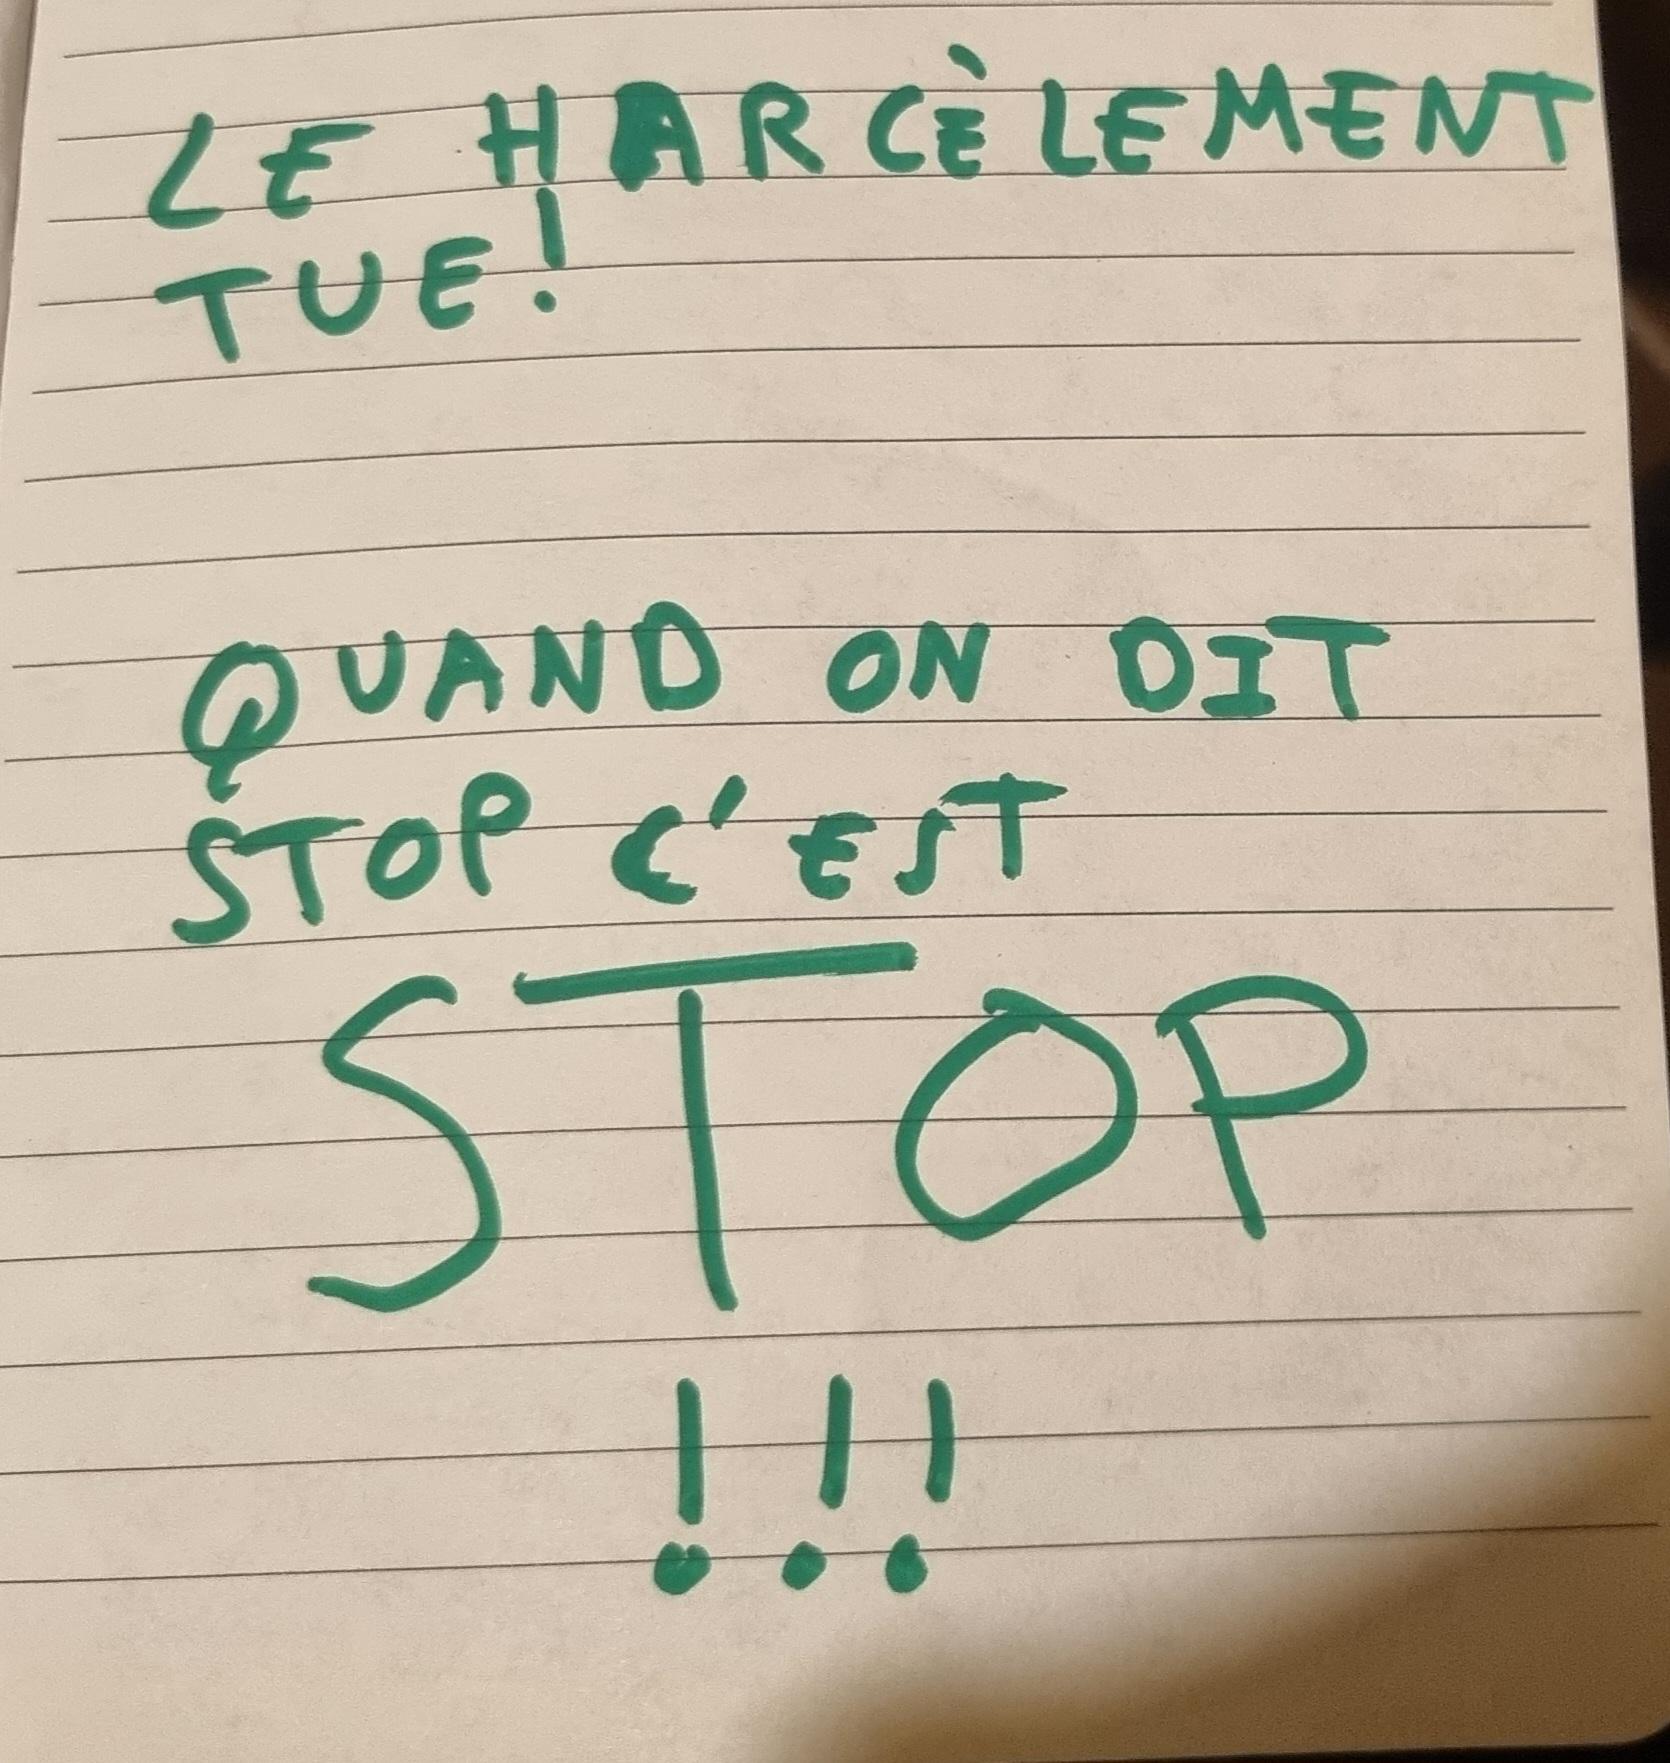 LE HARCÈLEMENT
TUE!
QUAND ON DIT
STOP C'EST
STOP
!!!